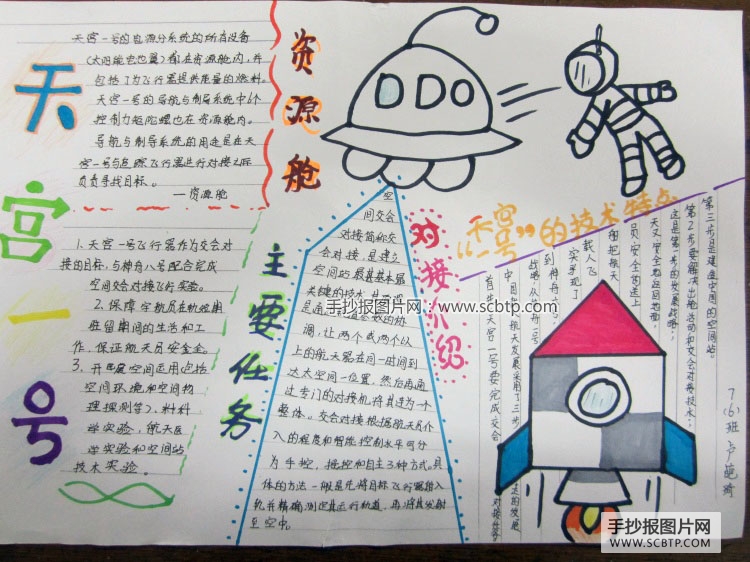 天宫一号
天宫一号的资源分系统的所有设备
(太阳能电池翼)都在资源舱内,并
包括了为飞行器提供能量的燃料。
天宫一号的导航与制导系统中6个
控制力矩陀螺也在资源舱内。
导航与制导系统的用途是在天
宫一号与追踪飞行器进行对接之际
负责寻找目标。
——资源舱
资源舱
1.天宫一号飞行器作为交会对
接的目标,与神舟八号配合完成
空间交会对接飞行实验。
2.保障宇航员在轨短期
驻留期间的生活和工
作,保证航天员安全。
3.开展空间应用包括
空间环境和空间物
理探测等)、材料
学实验,航天医
学实验和空间站
技术实验。
主要任务
空
间交会
对接简称交
会对接,是建立
空间站最基本最
关键的技术
调,让两个或两个以
上的航天器在同一时间到
达太空同一位置,然后再通
过专门的对接机将其连为一个
整体。交会对接根据航天员介
入的程度和智能控制水平可分
为手控、遥控和自主3种方式。具
体的方法一般是先将目标飞行器输入
轨并精确测定其运行轨道,再将其发射
至空中。
对接介绍
“天宫一号”的技术特点
第三步是建造空间的空间站。
第2步要解决出舱活动和交会对接技术;
这是第一步的发展战略;
天又安全地返回地面;
员安全的送上
和把航天
载人飞
实现了
到神舟六
战略,从神舟一号
中国航天发展采用了三步
首先天宫一号要完成交会
7(6)班
手抄报图片网：www.scbtp.com
手抄报图片网
WWW.SCBTP.COM